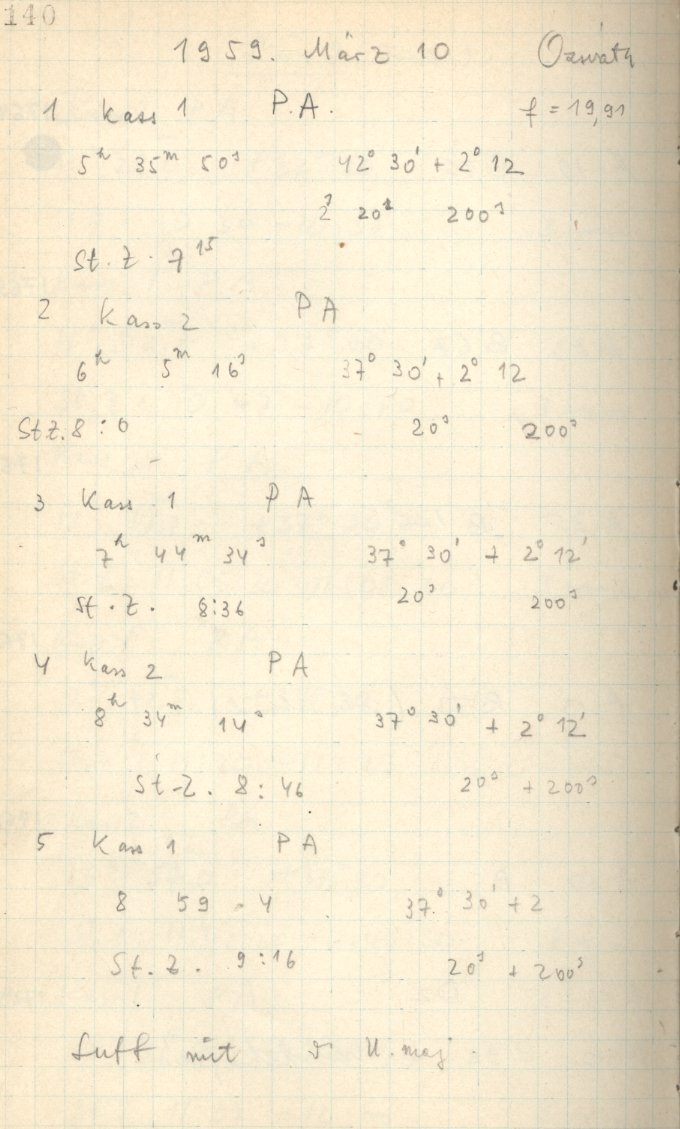 140
1959. März 10
1 Kass 1 P.A. f = 19,91
5ʰ 35ᵐ 50ˢ 42° 30' + 2° 12
20ˢ 200ˢ
St. Z. 7¹⁵
2 Kass 2 P A
6ʰ 5ᵐ 16ˢ 37° 30' + 2° 12
St Z. 8:0 20ˢ 200ˢ
3 Kass 1 P A
7ʰ 44ᵐ 34ˢ 37° 30' + 2° 12'
St. Z. 8:36 20ˢ 200ˢ
4 Kass 2 P A
8ʰ 34ᵐ 14ˢ 37° 30' + 2° 12'
St-Z. 8:46 20ˢ + 200ˢ
5 Kass 1 P A
8 59 4 37° 30' + 2
St. Z. 9:16 20ˢ + 200ˢ
mit U. maj.